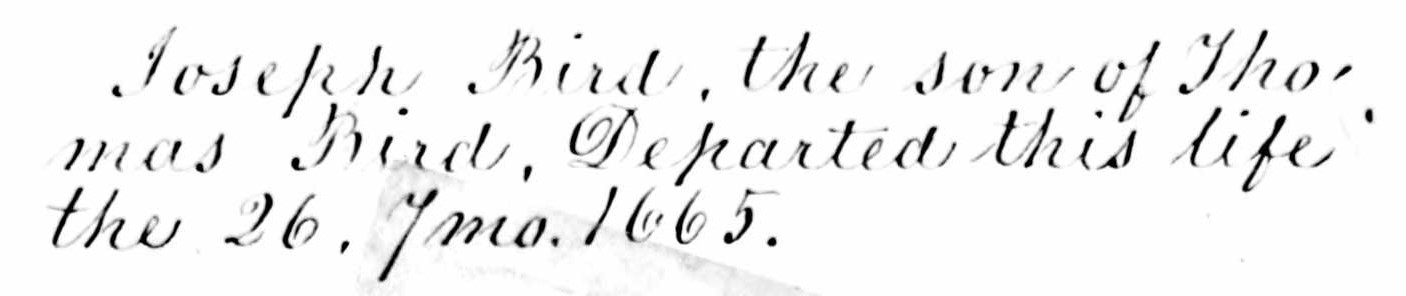 Joseph Bird, the son of Tho-
mas Bird, Departed this life
the 26, 7mo. 1665.